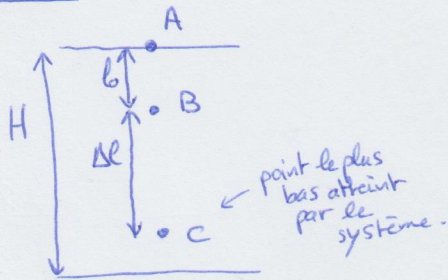 A
b
B
H
Δl
point le plus
bas atteint
par le
système.
C